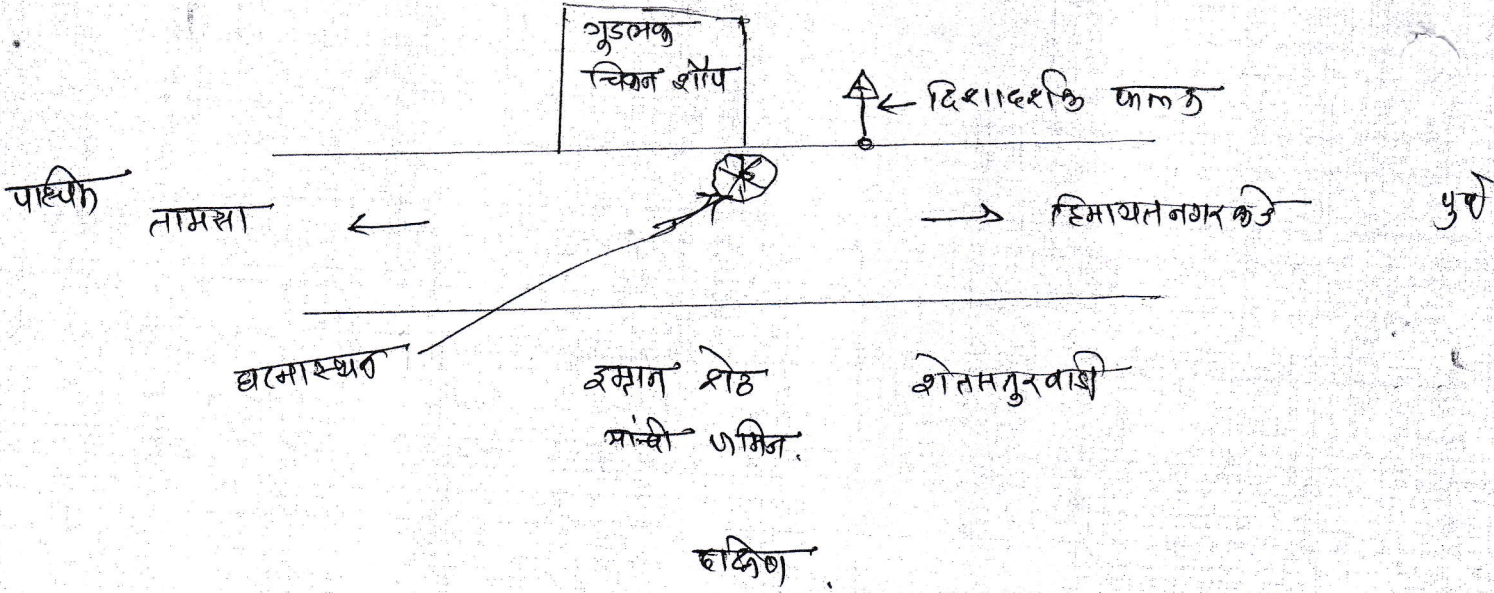 गुडलक
चिकन शॉप
दिशादर्शक फलक
पश्चिम
तामसा
हिमायतनगर कडे
पुर्व
घटनास्थळ
इम्रान शेठ
यांची जमिन.
शेत
दक्षिण